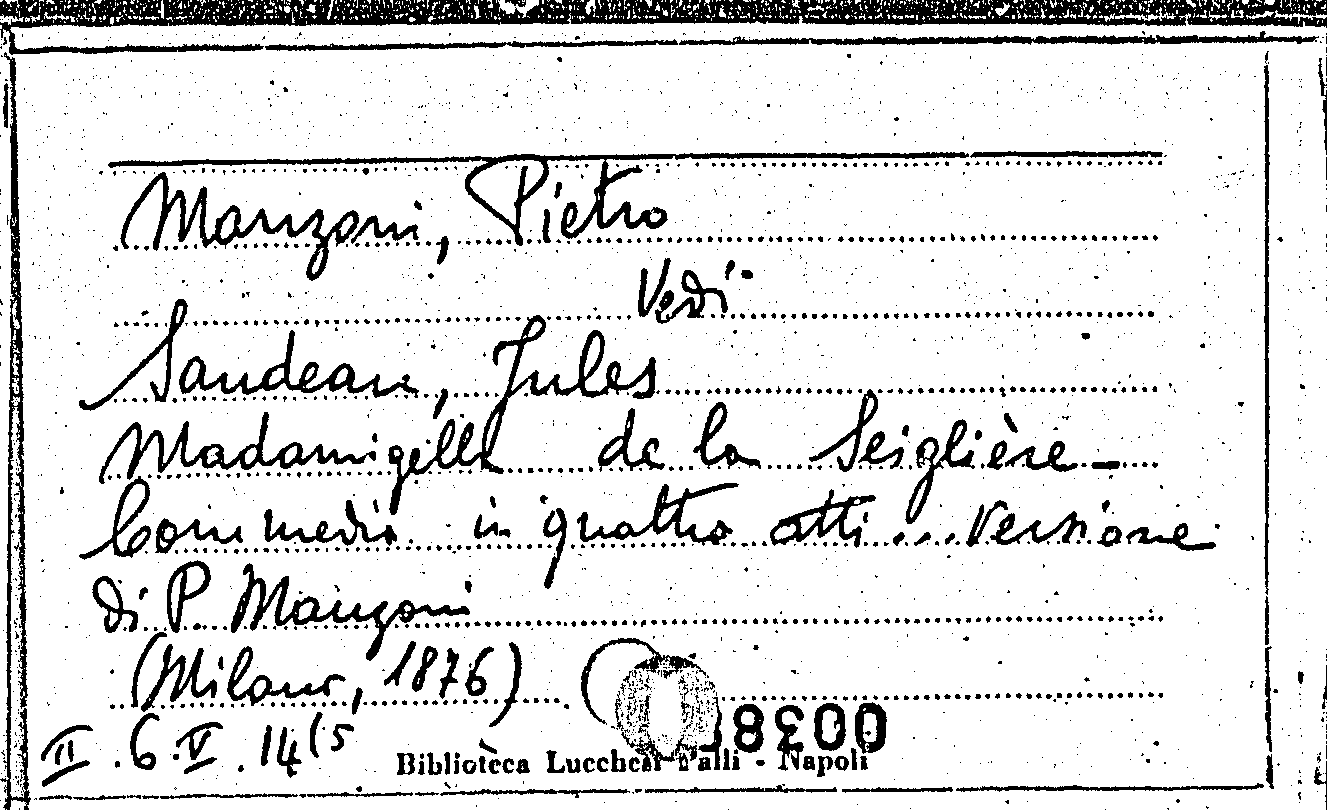 Manzoni, Pietro
Vedi
Sandeau, Jules
Madamigella de la Seiglière –
Commedia in quattro atti ... Versione
di P. Manzoni
(Milano, 1876)
II . 6 . V . 14 (5
Biblioteca Lucchesi Palli - Napoli